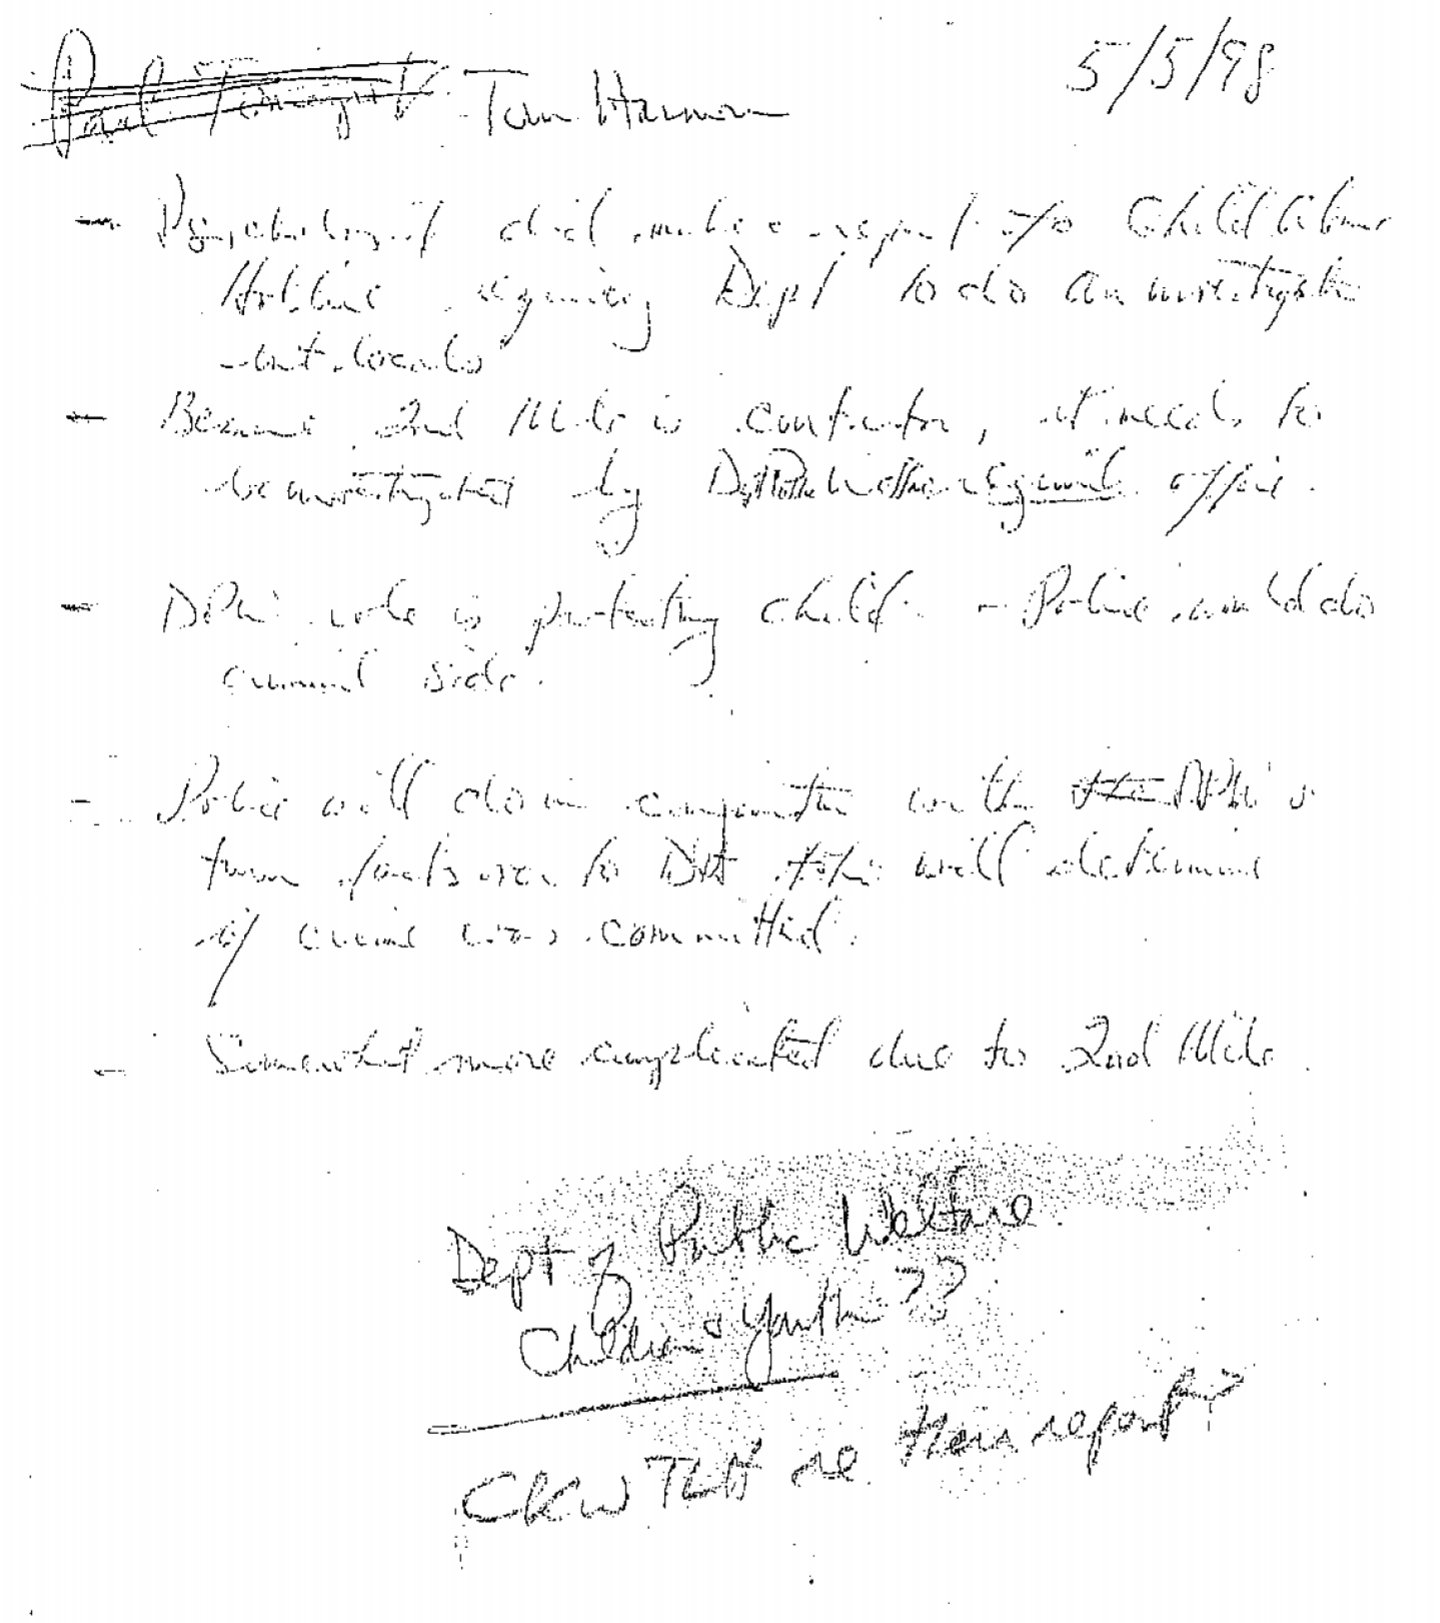 Tom Harmon 5/5/98
- Psychologist did make a report to Child Abuse
Hotline requiring Dept to do an investigation
not locals
- Because 2nd Mile is contractor, it needs to
be investigated by Dept Public Welfare regional office.
- DPW role is protecting child. - Police would do
criminal side.
- Police will do in conjunction with the DPW &
turn facts over to DA who will determine
if crime was committed.
- Somewhat more complicated due to 2nd Mile
Dept of Public Welfare
Children & Youth ??
Ck w TRH re their report?